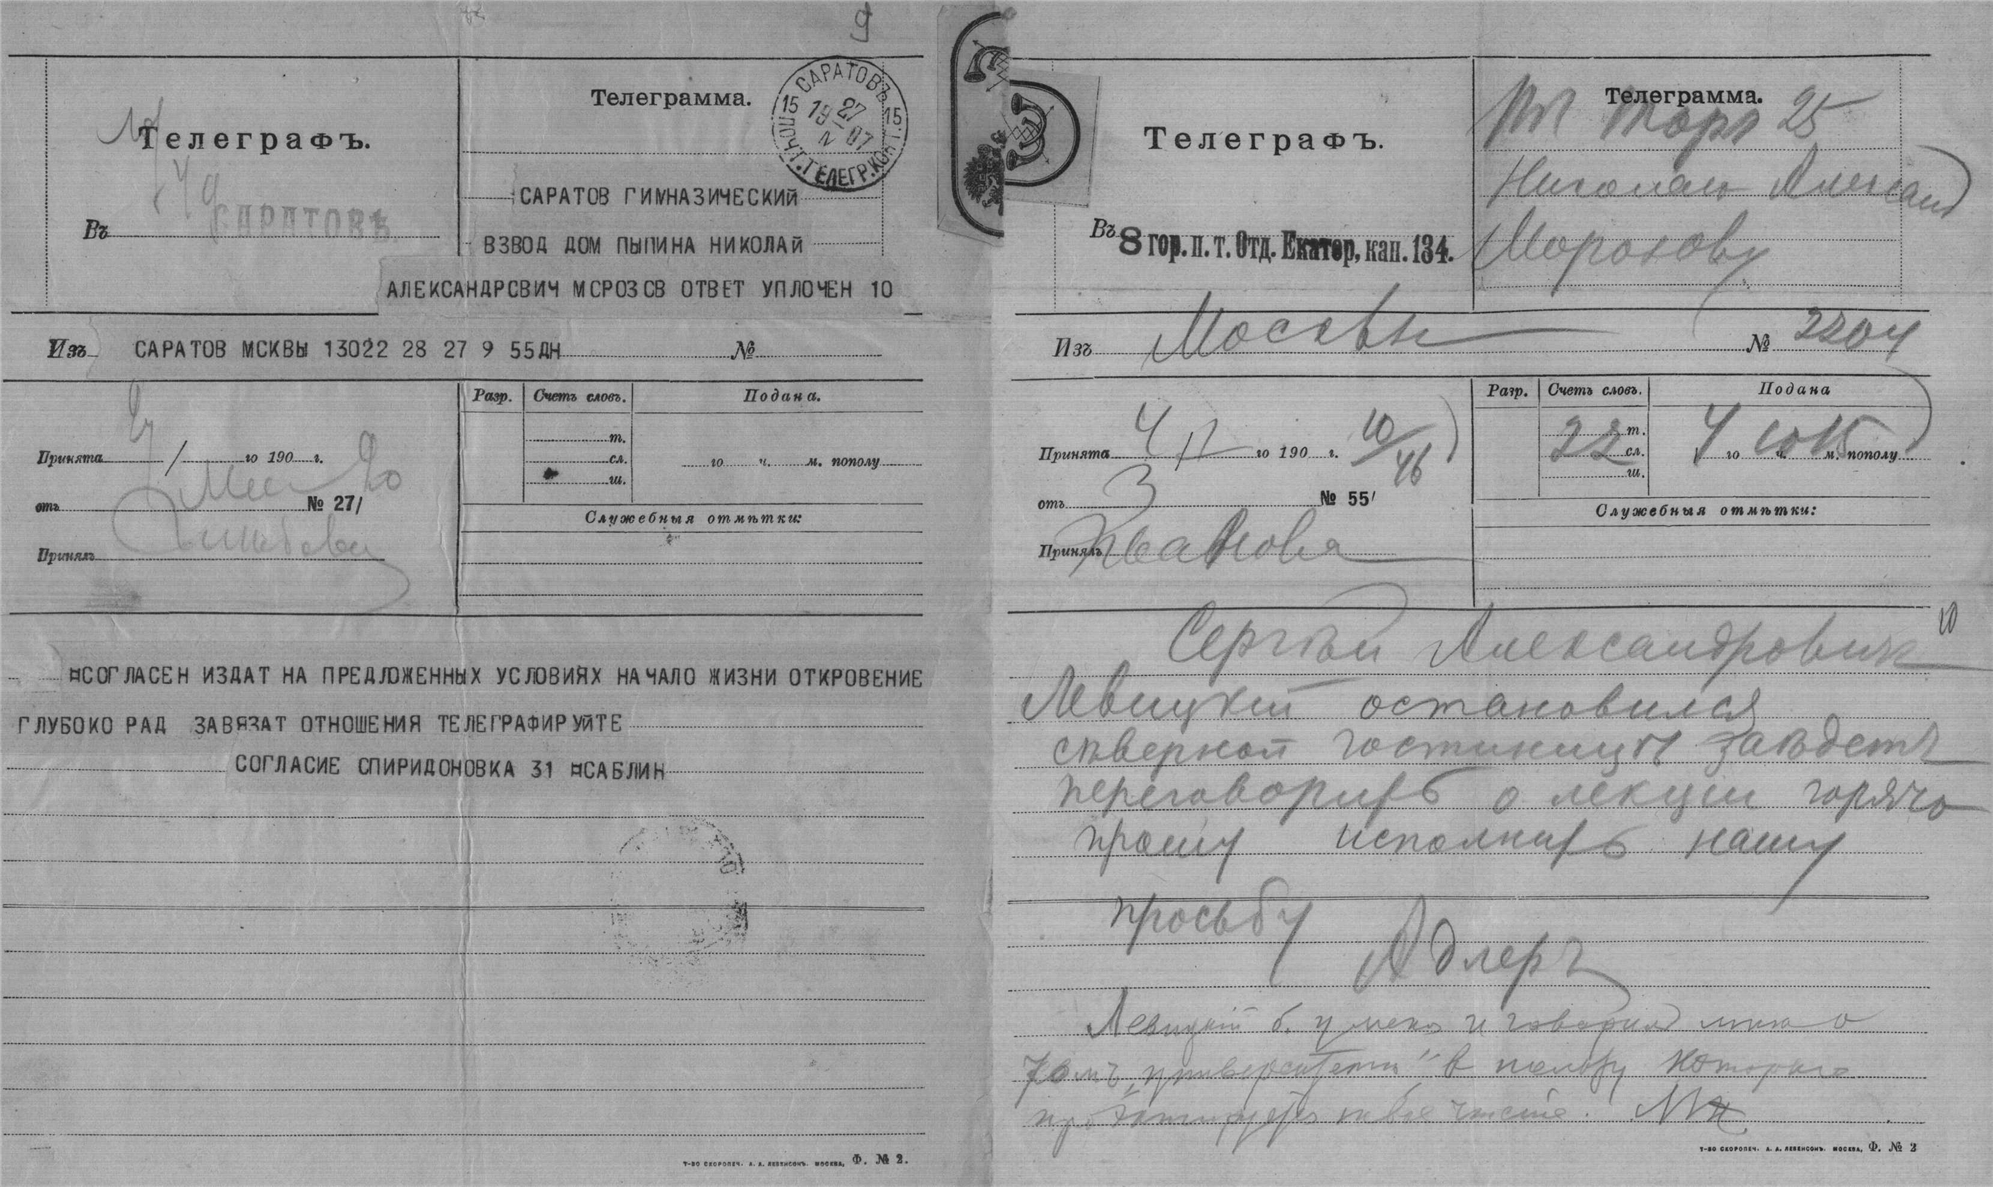 9
Телеграфъ.
Въ
САРАТОВЪ
Телеграмма.
САРАТОВЪ
15 27 15
19 IV 07
ПОЧТ. ТЕЛЕГР. КОНТ.
САРАТОВ ГИМНАЗИЧЕСКИЙ
ВЗВОД ДОМ ПЫПИНА НИКОЛАЙ
АЛЕКСАНДРСВИЧ МСРОЗСВ ОТВЕТ УПЛОЧЕН 10
Изъ САРАТОВ МСКВЫ 13022 28 27 9 55ДН №
Принята го 190 г.
отъ № 27/
Принялъ
Разр. Счетъ словъ. Подана.
т.
сл. го ч. м. пополу
ш.
Служебныя отмѣтки:
¤СОГЛАСЕН ИЗДАТ НА ПРЕДЛОЖЕННЫХ УСЛОВИЯХ НАЧАЛО ЖИЗНИ ОТКРОВЕНИЕ
ГЛУБОКО РАД ЗАВЯЗАТ ОТНОШЕНИЯ ТЕЛЕГРАФИРУЙТЕ
СОГЛАСИЕ СПИРИДОНОВКА 31 ¤САБЛИН
Т-ВО СКОРОПЕЧ. А. А. ЛЕВЕНСОНЪ. МОСКВА. Ф. № 2.
Телеграфъ.
Въ 8 гор. п. т. Отд. Екатер, кан. 134.
Телеграмма.
Торг 25
Николаю Александ
Морозову
Изъ Москвы № 2204
Принята 4 II го 190 г. 10/46
отъ 3 № 55/
Принялъ Иванова
Разр. Счетъ словъ. Подана
22 т. сл. ш.
4 го 10 ч. 15 м. пополу
Служебныя отмѣтки:
10
Сергѣй Александровичъ
Левицкій остановился
сѣверной гостиницѣ заѣдетъ
переговорить о лекціи горячо
прошу исполнить нашу
просьбу
Адлеръ
Левицкій б. у меня и говорил мнѣ о